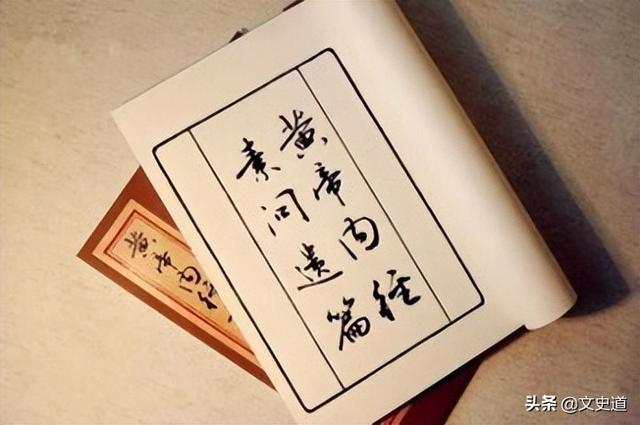 黄帝内经
素问遗篇
黄帝内经
头条 @文史道